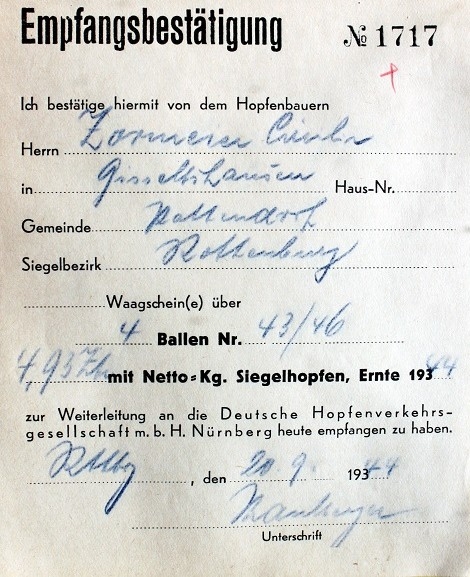 Empfangsbestätigung № 1717
Ich bestätige hiermit von dem Hopfenbauern
Herrn
in Gisseltshausen Haus-Nr.
Gemeinde Pattendorf
Siegelbezirk Rottenburg
Waagschein(e) über
4 Ballen Nr. 43/46
4,93 mit Netto=Kg. Siegelhopfen, Ernte 193 44
zur Weiterleitung an die Deutsche Hopfenverkehrs-
gesellschaft m. b. H. Nürnberg heute empfangen zu haben.
Rttbg , den 20.9. 193 44
Unterschrift